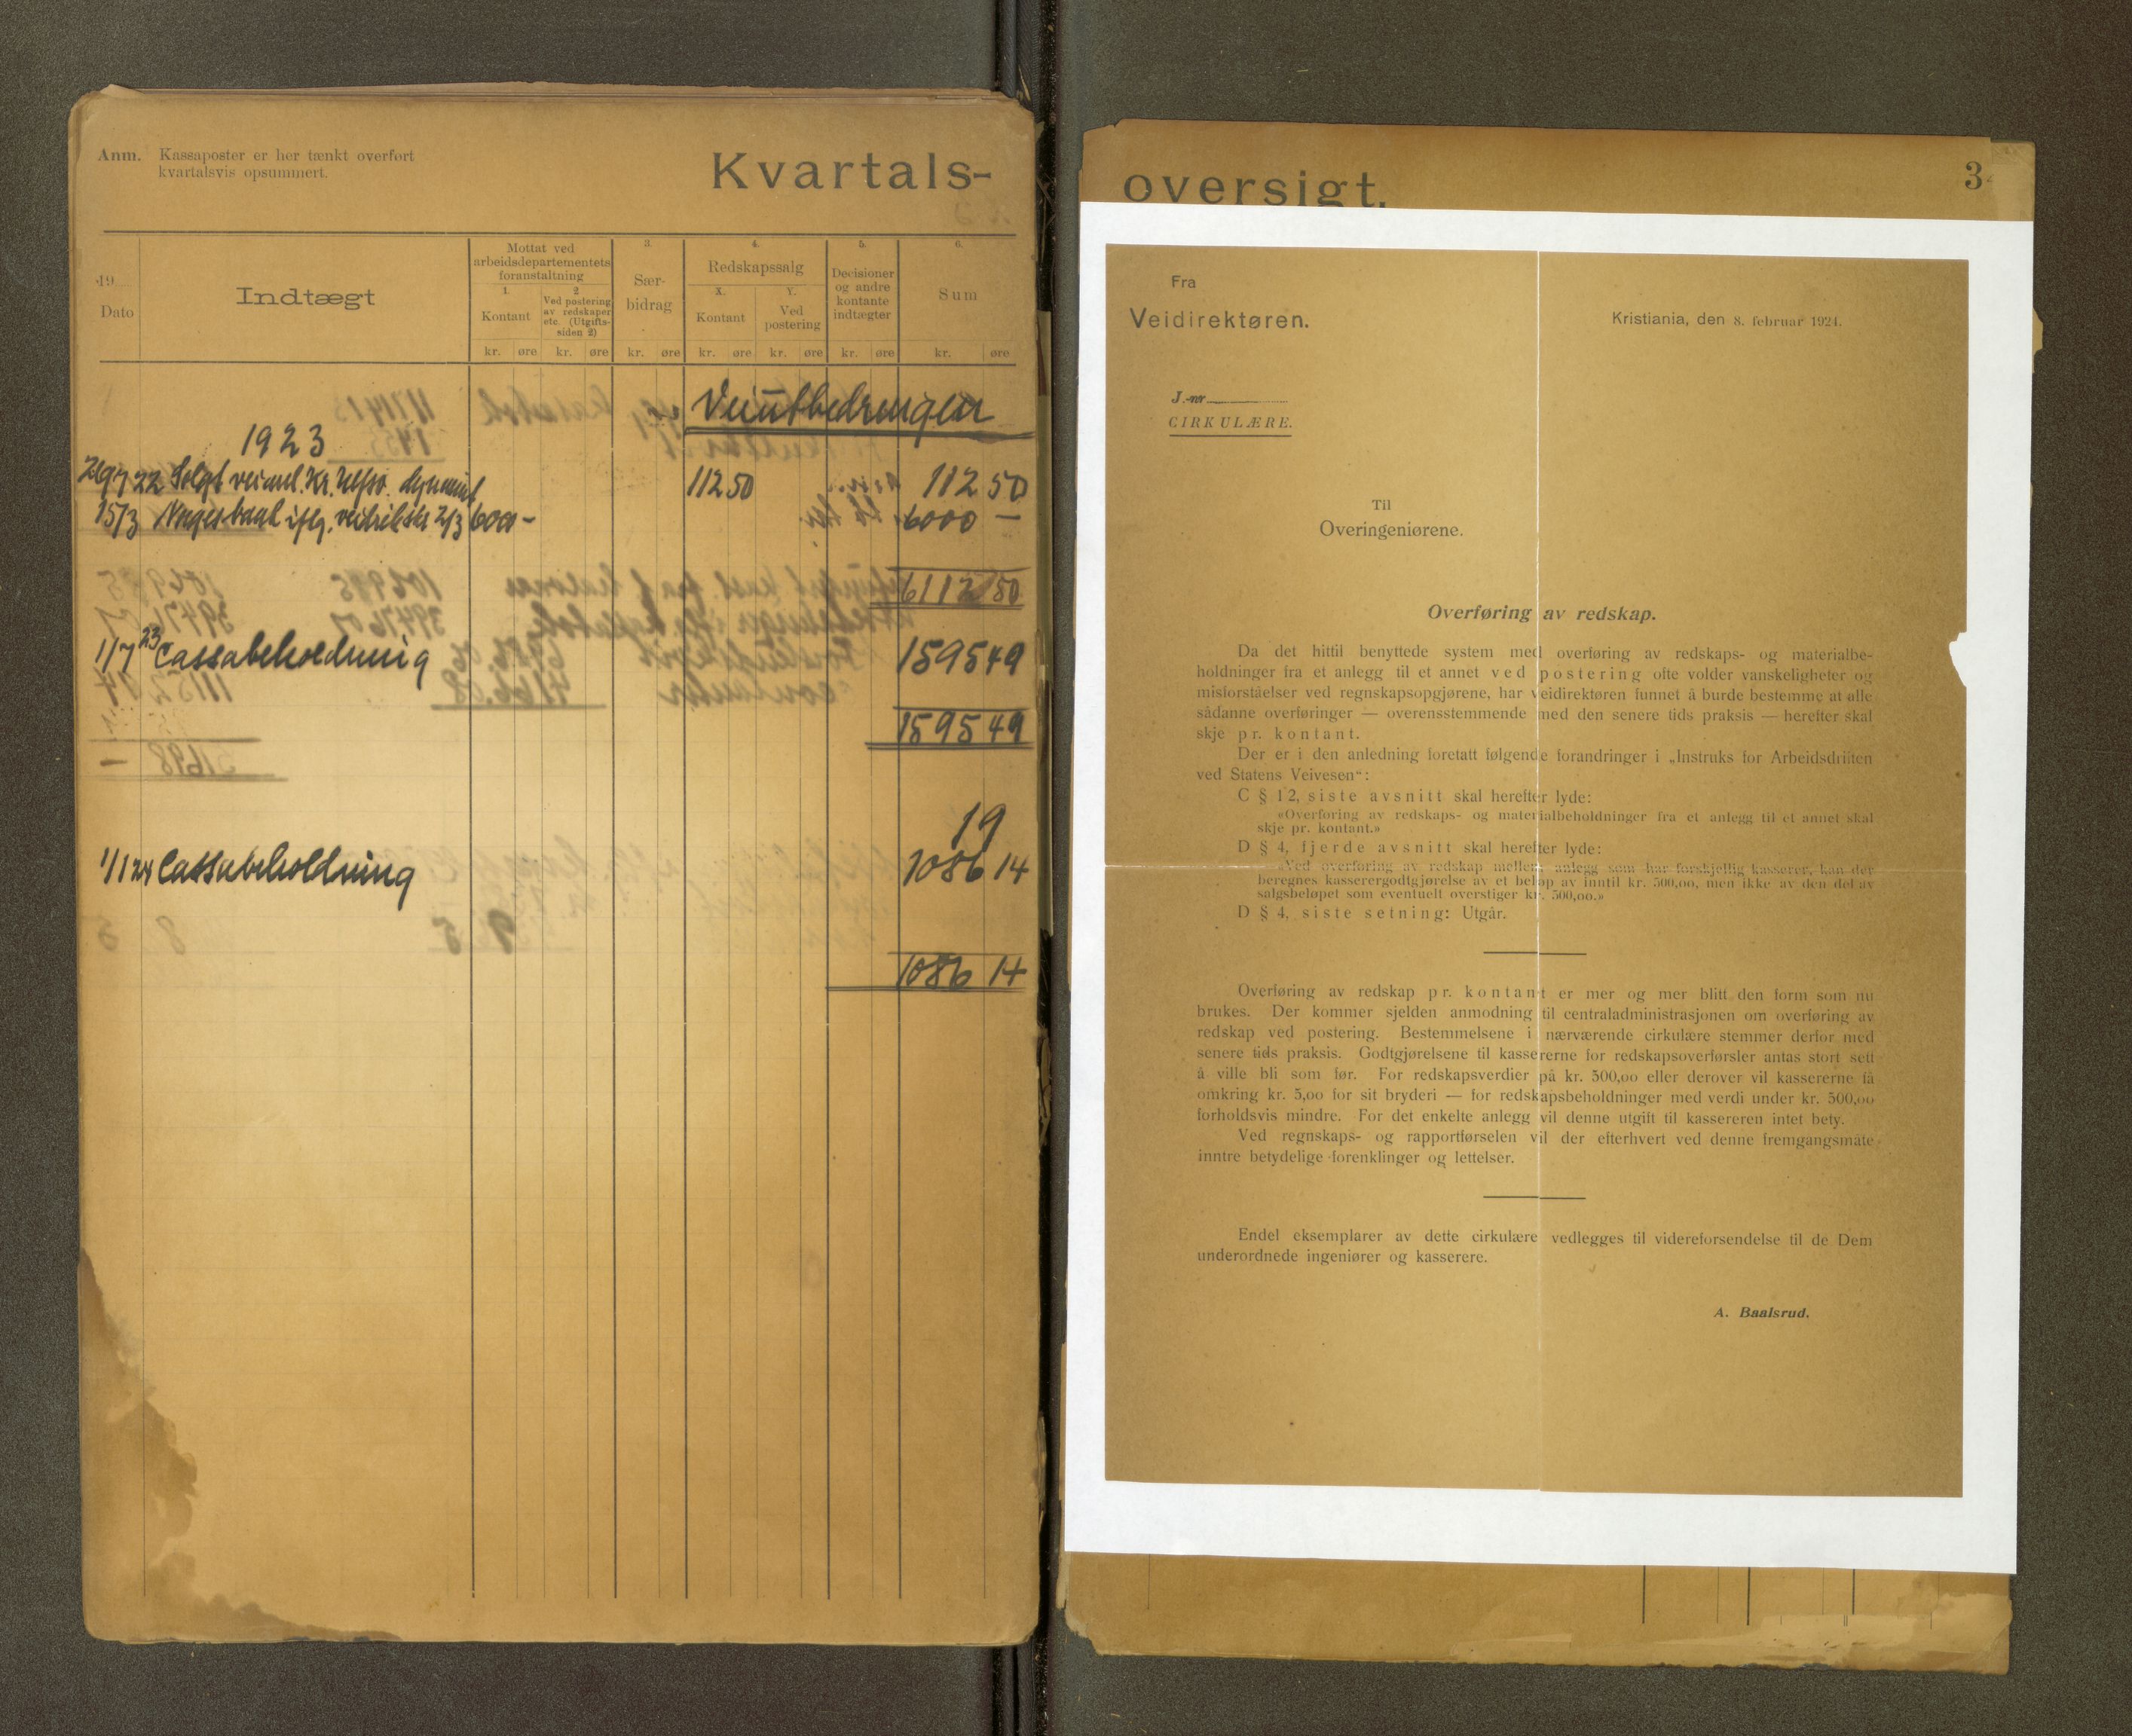 Anm. Kassaposter er her tænkt overført
kvartalsvis opsummert.
Kvartals-
19
Dato
Indtægt
Mottat ved
arbeidsdepartementets
foranstaltning
1.
Kontant
2
Ved postering
av redskaper
etc. (Utgifts-
siden 2)
3.
Sær-
bidrag
4.
Redskapssalg
X.
Kontant
Y.
Ved
postering
5.
Decisioner
og andre
kontante
indtægter
6.
Sum
kr. øre kr. øre kr. øre kr. øre kr. øre kr. øre kr. øre
Veiutbedringen
1923
22 Solgt 112 50 112 50
15/3 Norges bank iflg. 2/3 6000 - 6000 -
6112 50
1/7 23 Cassabeholdning 1595 49
1595 49
19
1/1 24 Cassabeholdning 1086 14
1086 14
oversigt.
3
Fra
Veidirektøren.
Kristiania, den 8. februar 1924.
J.-nr
CIRKULÆRE.
Til
Overingeniørene.
Overføring av redskap.
Da det hittil benyttede system med overføring av redskaps- og materialbe-
holdninger fra et anlegg til et annet ved postering ofte volder vanskeligheter og
misforståelser ved regnskapsopgjørene, har veidirektøren funnet å burde bestemme at alle
sådanne overføringer — overensstemmende med den senere tids praksis — herefter skal
skje pr. kontant.
Der er i den anledning foretatt følgende forandringer i „Instruks for Arbeidsdriften
ved Statens Veivesen“:
C § 12, siste avsnitt skal herefter lyde:
«Overføring av redskaps- og materialbeholdninger fra et anlegg til et annet skal
skje pr. kontant.»
D § 4, fjerde avsnitt skal herefter lyde:
«Ved overføring av redskap mellem anlegg som har forskjellig kasserer, kan der
beregnes kasserergodtgjørelse av et beløp av inntil kr. 500,00, men ikke av den del av
salgsbeløpet som eventuelt overstiger kr. 500,00.»
D § 4, siste setning: Utgår.
Overføring av redskap pr. kontant er mer og mer blitt den form som nu
brukes. Der kommer sjelden anmodning til centraladministrasjonen om overføring av
redskap ved postering. Bestemmelsene i nærværende cirkulære stemmer derfor med
senere tids praksis. Godtgjørelsene til kassererne for redskapsoverførsler antas stort sett
å ville bli som før. For redskapsverdier på kr. 500,00 eller derover vil kassererne få
omkring kr. 5,00 for sit bryderi — for redskapsbeholdninger med verdi under kr. 500,00
forholdsvis mindre. For det enkelte anlegg vil denne utgift til kassereren intet bety.
Ved regnskaps- og rapportførselen vil der efterhvert ved denne fremgangsmåte
inntre betydelige forenklinger og lettelser.
Endel eksemplarer av dette cirkulære vedlegges til videreforsendelse til de Dem
underordnede ingeniører og kasserere.
A. Baalsrud.